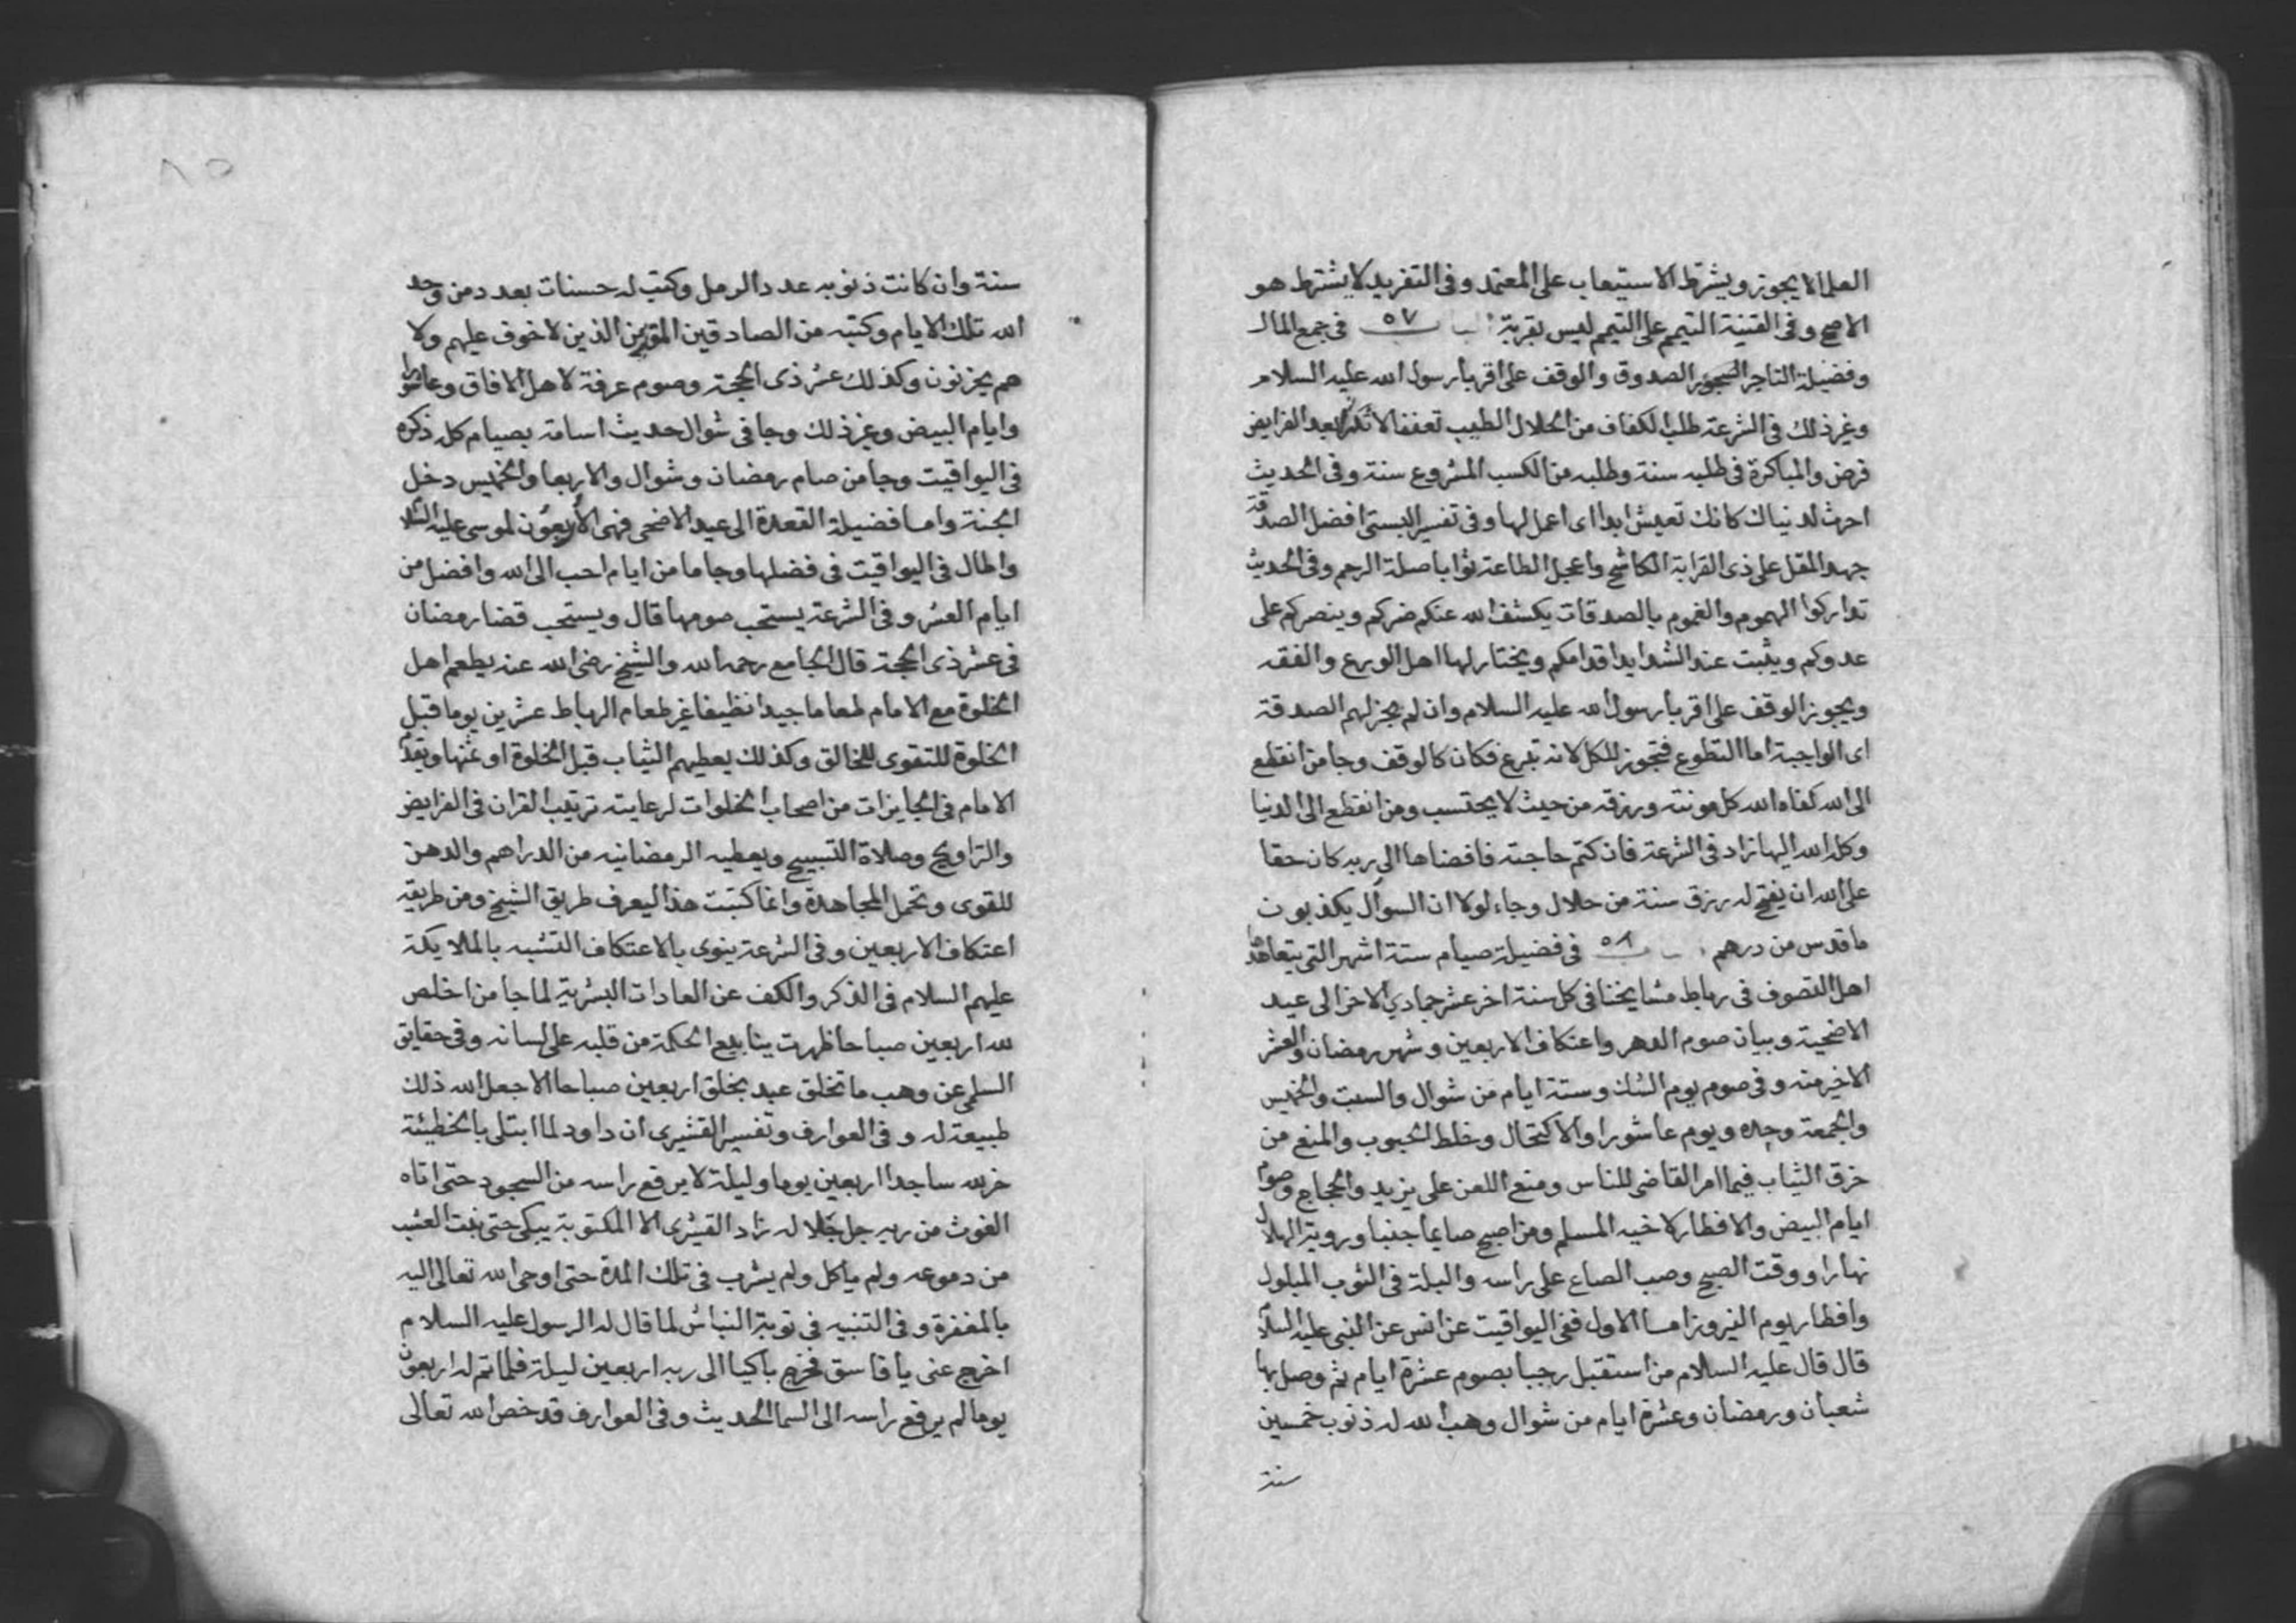 العلما لا يجوز ويشترط الاستيعاب على المعتمد وفى التفريد لا يشترط هو
الاصح وفى القنية التيمم على التيمم ليس بقربة باب ٥٧ فى جمع المال
وفضيلة التاجر الصدوق والوقف على اقربا رسول الله عليه السلام
وغير ذلك فى الشرعة طلب الكفاف من الحلال الطيب تعففا لا تكثرا بعد الفرايض
فرض والمباكرة فى طلبه سنة وطلبه من الكسب المشروع سنة وفى الحديث
احرث لدنياك كانك تعيش ابدا اى اعمل لها وفى تفسير البستى افضل الصدقة
جهد المقل على ذى القرابة الكاشح واعجل الطاعة ثوابا صلة الرحم وفى الحديث
تداركوا الهموم والغموم بالصدقات يكشف الله عنكم ضركم وينصركم على
عدوكم ويثبت عند الشدايد اقدامكم ويختار لها اهل الورع والفقه
ويجوز الوقف على اقربا رسول الله عليه السلام وان لم يجز لهم الصدقة
اى الواجبة اما التطوع فتجوز للكل لانه تبرع فكان كالوقف وجا من انقطع
الى الله كفاه الله كل مونته ورزقه من حيث لا يحتسب ومن انقطع الى الدنيا
وكله الله اليها زاد فى الشرعة فان كتم حاجته فافضاها الى ربه كان حقا
على الله ان يفتح له رزق سنة من حلال وجاء لولا ان السوال يكذبون
ما قدس من درهم باب ٥٨ فى فضيلة صيام ستة اشهر التى يتعاهدها
اهل التصوف فى رباط مشايخنا فى كل سنة اخر عشر جمادي الاخر الى عيد
الاضحية وبيان صوم الدهر واعتكاف الاربعين وشهر رمضان والعشر
الاخير منه وفى صوم يوم الشك وستة ايام من شوال والسبت والخميس
والجمعة وحده ويوم عاشورا والاكتحال وخلط الحبوب والمنع من
خرق الثياب فيما امر القاضى للناس ومنع اللعن على يزيد والحجاج وصوم
ايام البيض والافطار لاخيه المسلم ومن اصبح صايما جنبا وروية الهلال
نهارا ووقت الصبح وصب الصاع على راسه والبلة فى الثوب المبلول
وافطار يوم النيروز اما الاول ففى اليواقيت عن انس عن النبى عليه السلام
قال قال عليه السلام من استقبل رجبا بصوم عشرة ايام ثم وصل بها
شعبان ورمضان وعشرة ايام من شوال وهب الله له ذنوب خمسين
سنة
٨٥
سنة وان كانت ذنوبه عدد الرمل وكتب له حسنات بعدد من وحد
الله تلك الايام وكتبه من الصادقين الذين لا خوف عليهم ولا
هم يحزنون وكذلك عشر ذى الحجة وصوم عرفة لاهل الافاق وعاشورا
وايام البيض وغير ذلك وجا فى شوال حديث اسامة بصيام كله ذكره
فى اليواقيت وجا من صام رمضان وشوال والاربعا والخميس دخل
الجنة واما فضيلة القعدة الى عيد الاضحى فهى الاربعون لموسى عليه السلام
واطال فى اليواقيت فى فضلها وجا ما من ايام احب الى الله وافضل من
ايام العشر وفى الشرعة يستحب صومها قال ويستحب قضا رمضان
فى عشر ذى الحجة قال الجامع رحمه الله والشيخ رضى الله عنه يطعم اهل
الخلوة مع الامام طعاما جيدا نظيفا غير طعام الرباط عشرين يوما قبل
الخلوة للتقوى للخالق وكذلك يعطيهم الثياب قبل الخلوة او ثمنها ويقدم
الامام فى الجايزات من اصحاب الخلوات لرعايته ترتيب القران فى الفرايض
والتراويح وصلاة التسبيح ويعطيه الرمضانيه من الدراهم والدهن
للقوى وتحمل المجاهدة وانما كتبت هذا ليعرف طريق الشيخ ومن طريقه
اعتكاف الاربعين وفى الشرعة ينوى بالاعتكاف التشبه بالملايكة
عليهم السلام فى الذكر والكف عن العادات البشرية لما جا من اخلص
لله اربعين صباحا ظهرت ينابيع الحكمة من قلبه على لسانه وفى حقايق
السلمى عن وهب ما تخلق عبد بخلق اربعين صباحا الا جعل الله ذلك
طبيعة له وفى العوارف وتفسير القشيرى ان داود لما ابتلى بالخطيئة
خر لله ساجدا اربعين يوما وليلة لا يرفع راسه من السجود حتى اتاه
الغوث من ربه جل جلاله زاد القشيرى الا المكتوبة يبكى حتى نبت العشب
من دموعه ولم ياكل ولم يشرب فى تلك المدة حتى اوحى الله تعالى اليه
بالمغفرة وفى التنبيه فى توبة النباش لما قال له الرسول عليه السلام
اخرج عنى يا فاسق فخرج باكيا الى ربه اربعين ليلة فلما تم له اربعون
يوما لم يرفع راسه الى السما الحديث وفى العوارف قد خص الله تعالى